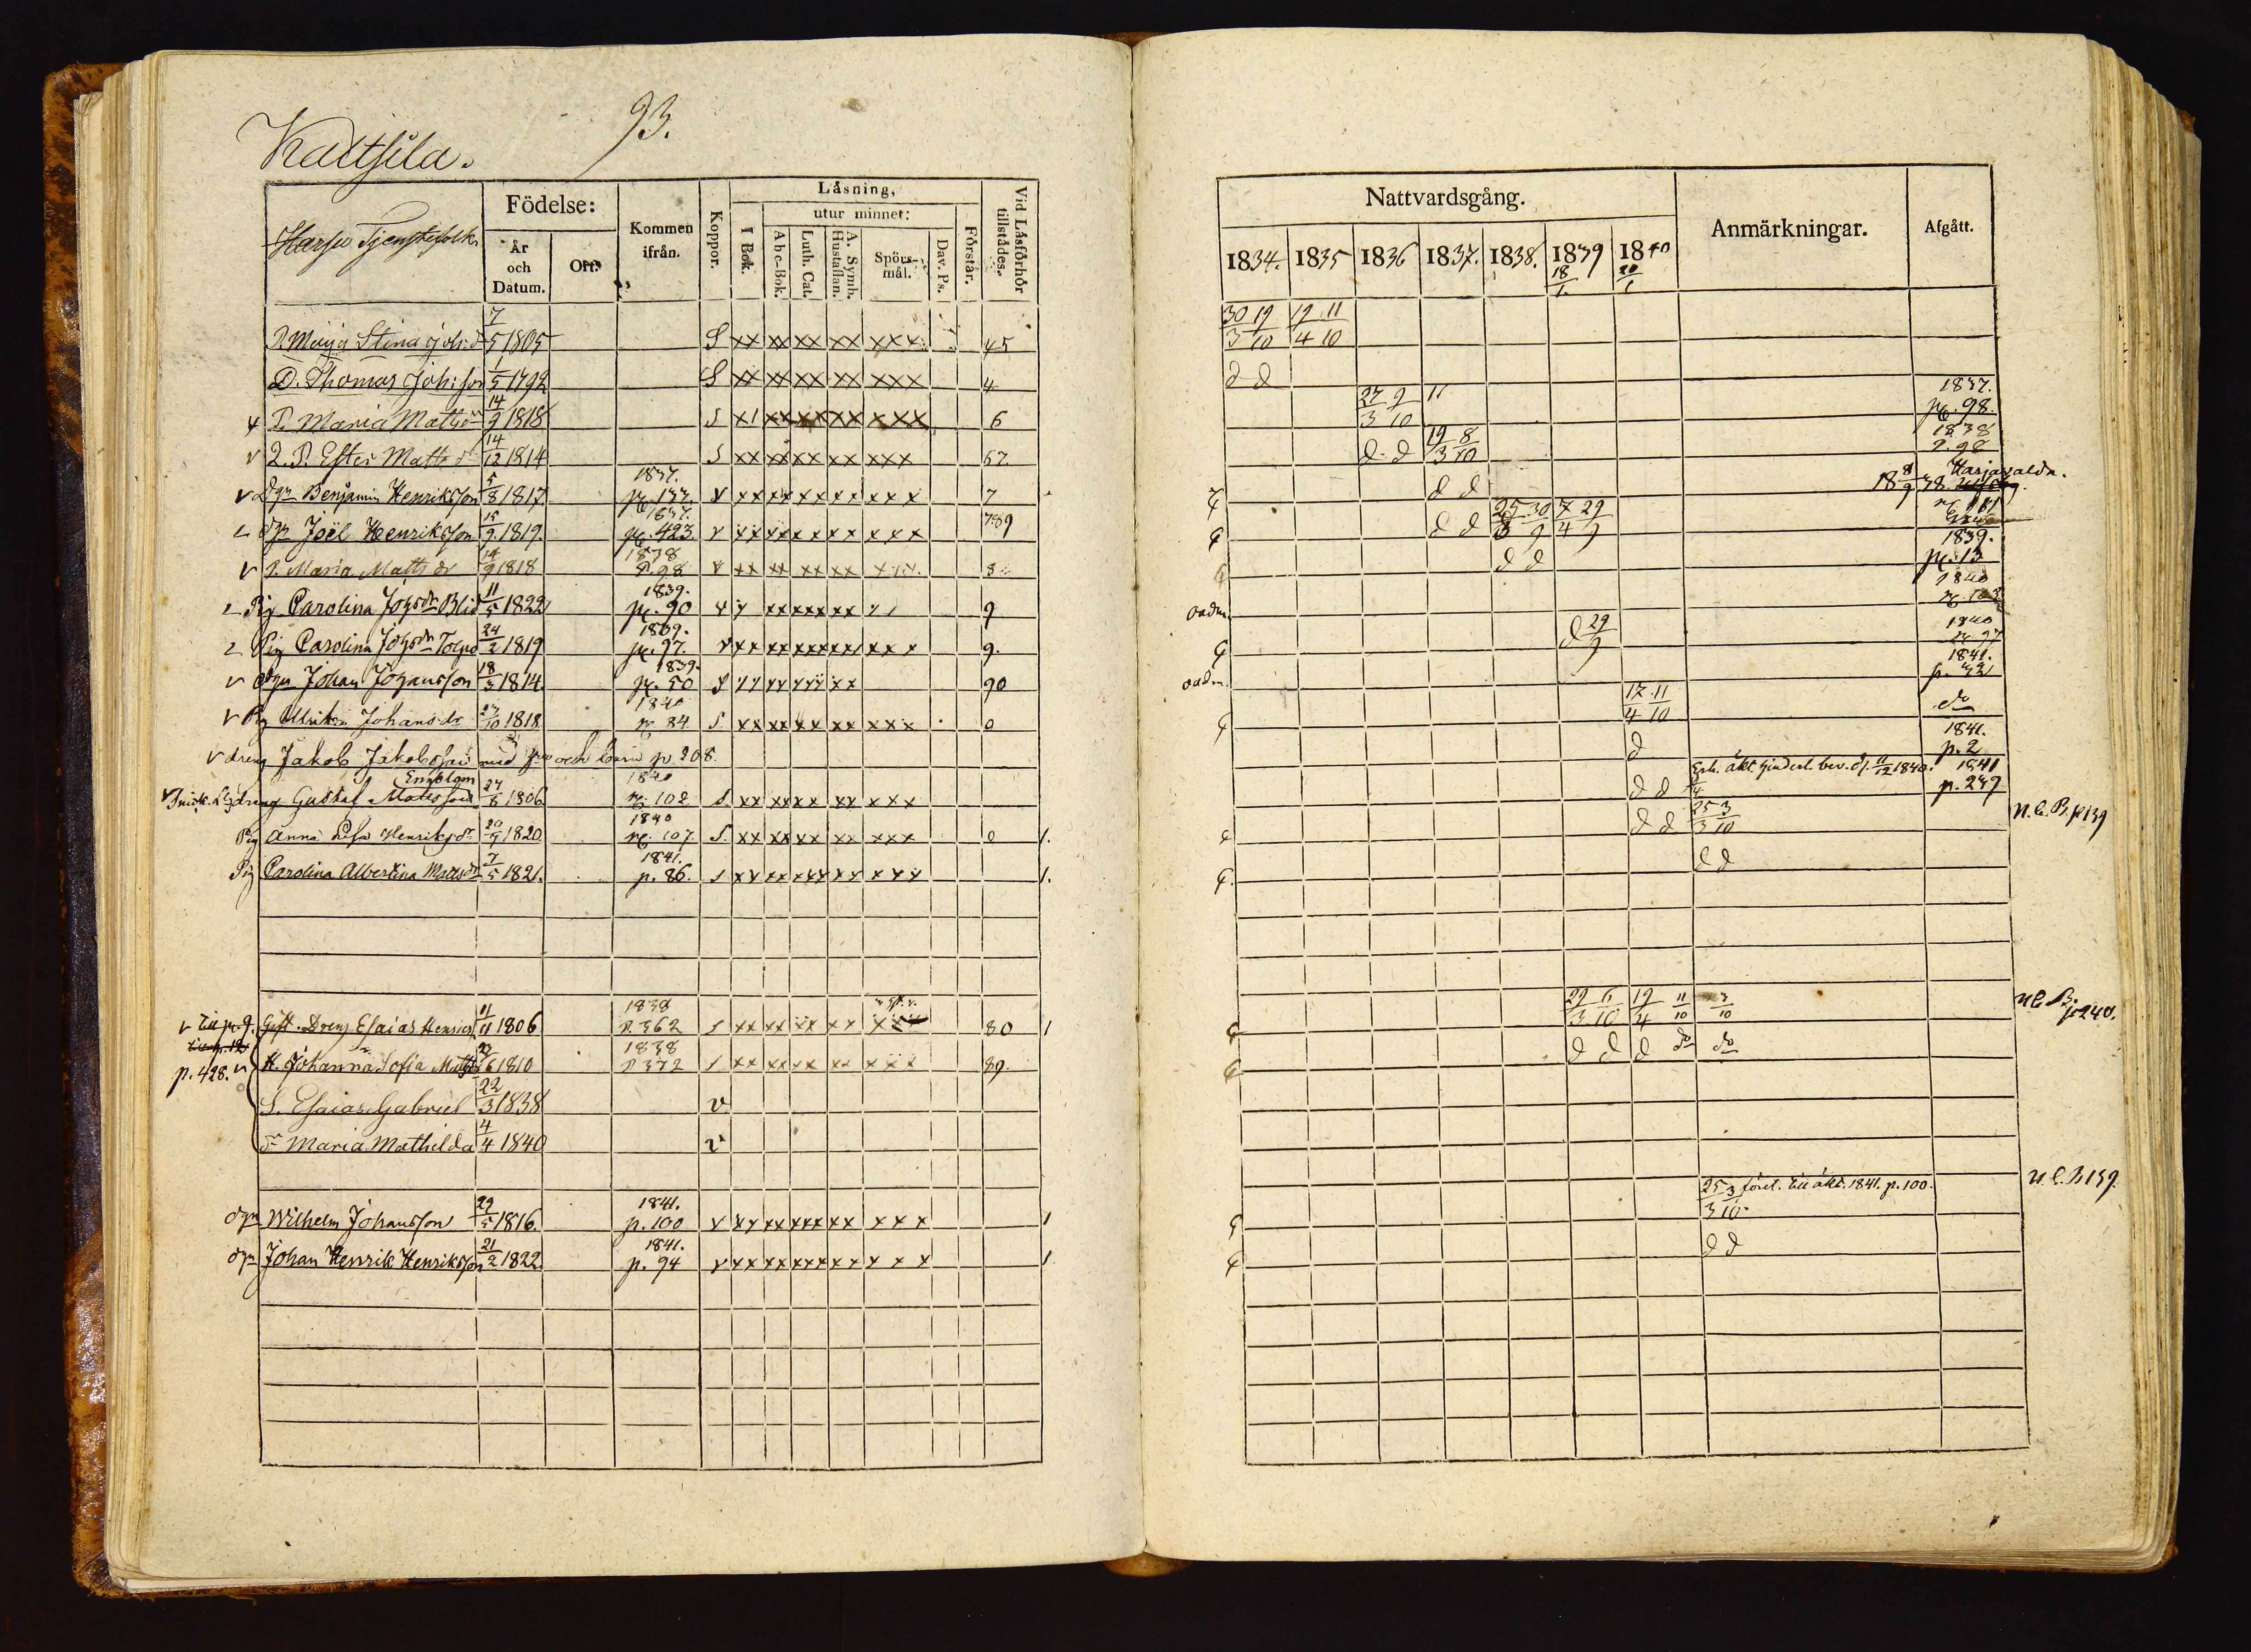 93.
Kaltsila.
Harju Tjenstefolk
Födelse:
År och Datum.
Ort.
Kommen ifrån.
Koppor.
Läsning,
I Bok.
utur minnet:
Abc-Bok.
Luth. Cat.
A. Symb. Hustaflan.
Spörs-mål.
Dav. Ps.
Förstår.
Vid Läsförhör tillstädes.
Nattvardsgång.
1834. 1835 1836 1837. 1838. 1839 1840
18/1. 20/1
Anmärkningar.
Afgått.
P. Maija Stina Joh:dr 7/5 1805 S xx xx xx xx xxx 45 30 19/3 10 12 11/4 10
D. Thomas Joh:son 1/5 1792 S xx xx xx xx xxx 4 d d
P. Maria Matsdr 14/9 1818 S x1 xx xx xx xxx 6 27 9/3 10 11 1837. pg. 98.
P. Ester Matts dr 14/12 1814 S xx xx xx xx xxx 67. d. d 19 8/3 10 1838 P. 98
v Dgr Benjamin Henriksson 5/8 1817 1837. pg. 137. v xx xx xx xx xxx 7 d d 18 8/9 38. Harjavalda.
Dgr Joël Henriksson 15/9 1819. 1837. pg. 423 v xx xx xx xx xxx 789 d d 25 30/3 9 7 29/4 9
v P. Maria Matts dr 14/9 1818 1838 P. 98 v xx xx xx xx 8 d d 1839. pg. 13
Pig Carolina Johsdr Blid 11/5 1822 1839. pg. 90 v xx xx xx 9 oadm. 1840
Pig Carolina Johsdr 24/2 1819 1839. pg. 97. v xx xx xx xx xxx 9. d 29/9 1840
v dgr Johan Johansson 18/3 1814 1839. pg. 50 90 oadm. 1841. p. 32
v Pig Ulrika Johans dr 27/10 1818 1840 pg 84 S xx xx xx xx xxx 0 12 11/4 10 do
v dreng Jakob Jakobsson med hu och barn p. 208. d 1841. p. 2
Engblom
dreng Gustaf Matsson 27/8 1806 1840 pg. 102 S xx xx xx xx xxx d d Erh. äkt. hinderl. bev. d. 11/12 1840. 1841 p. 249
Pig Anna Lisa Henriksdr 20/9 1820 1840 pg. 107 S. xx xx xx xx xxx 0 1. d d 25 3/3 10 n. C. B. p 139
Pig Carolina Albertina Mattsdr 7/5 1821. 1841. p. 86. s xx xx xx xx xxx 1. d d
v till p. 9. Gift. Dreng Esaias Henrics. 11/11 1806 1838 P. 362 s xx xx xx xx 80 1 29 6/3 10 19/4 11/10 3/10 n C B. p 240.
p. 428. v H. Johanna Sofia Matts 1810 1838 P 372 s xx xx xx xx xxx 89. d d d do do
S. Esaias Gabriel 22/3 1838 v
dr Maria Mathilda 4/4 1840 v
dgr Wilhelm Johansson 29/5 1816. 1841. p. 100 v xx xx xx xx xxx 1 25 3/3 10. förel. till äkt. 1841. p. 100. n. C. B 139.
dgr Johan Henrik Henriksson 21/2 1822. 1841. p. 94 v xx xx xx xx xxx 1 d d